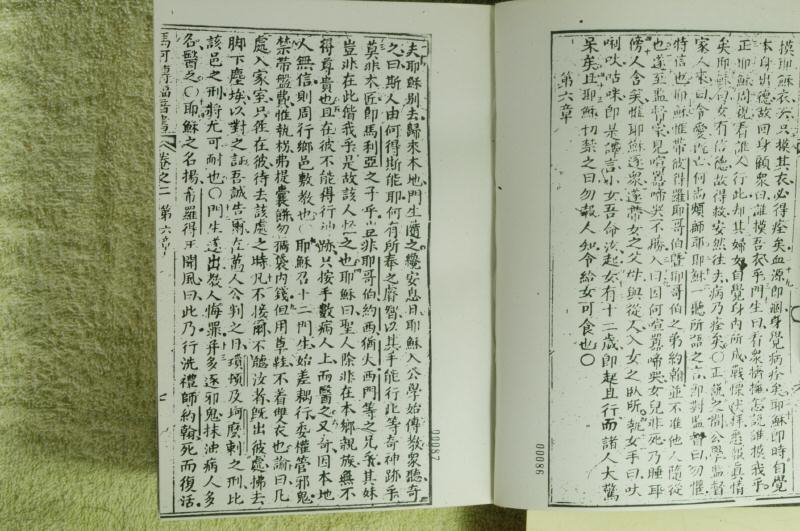 摸耶穌衣云只摸其衣必得痊矣血源即涸身覺病痊矣耶穌即時自覺
本身出德故回身顧衆曰誰摸吾衣乎門生曰看衆擠擁怎說誰摸我乎
正耶穌周視看誰人行此却其婦女自覺身內所成戰慄伏拜悉報眞情
矣耶穌向女曰女有信德故得救安然往去病乃痊矣○正說之間公學監督
家人來曰令愛既亡何尚煩師耶耶穌一聽所語之言即對監督曰勿懼
特信也耶穌惟帶彼得羅耶哥伯暨耶哥伯之弟約翰並不准他人隨從
也遂至監督家見喧囂啼哭不勝入曰因何喧囂啼哭女兒非死乃睡耳
傍人含笑惟耶穌逐衆遂帶女之父母與從人入女之臥所執女手曰
唎咕咪即是譯言小女吾命汝起女有十二歲即起且行而諸人大驚
呆矣且耶穌切禁之曰勿報人知令給女可食也○
第六章
00086
夫耶穌别去歸來本地門生隨之纔安息日耶穌入公學始傳敎衆聽奇
之曰斯人由何得斯能耶何有所奉之睿智以其手能行此等奇神跡乎
莫非木匠即馬利亞之子乎豈非耶哥伯約西猶大西門等之兄乎其妹
豈非在此偕我乎是故該人怪之也耶穌曰聖人除非在本鄉親族無不
得尊貴也且在彼不能得行神跡只按手數病人上而醫之又奇因本地
人無信則周行鄉邑敷敎也○耶穌召十二門生始差耦行委權管邪鬼
禁帶盤費惟執柺弗提囊餅勿攜袋内錢但用草鞋不着雙衣也諭曰凡
處入家室只住在彼待去該處之時凡不接爾不聽汝者旣出彼處拂去
脚下塵埃以對之證吾誠告爾在萬人公判之日瑣頓及坷麼喇之刑比
該邑之刑將尤可耐也○門生遂出敎人悔罪幷多逐邪鬼抹油病人多
名醫之○耶穌之名揚希羅得王聞風曰此乃行洗禮師約翰死而復活
馬可傳福音書 卷之二 第六章
00087